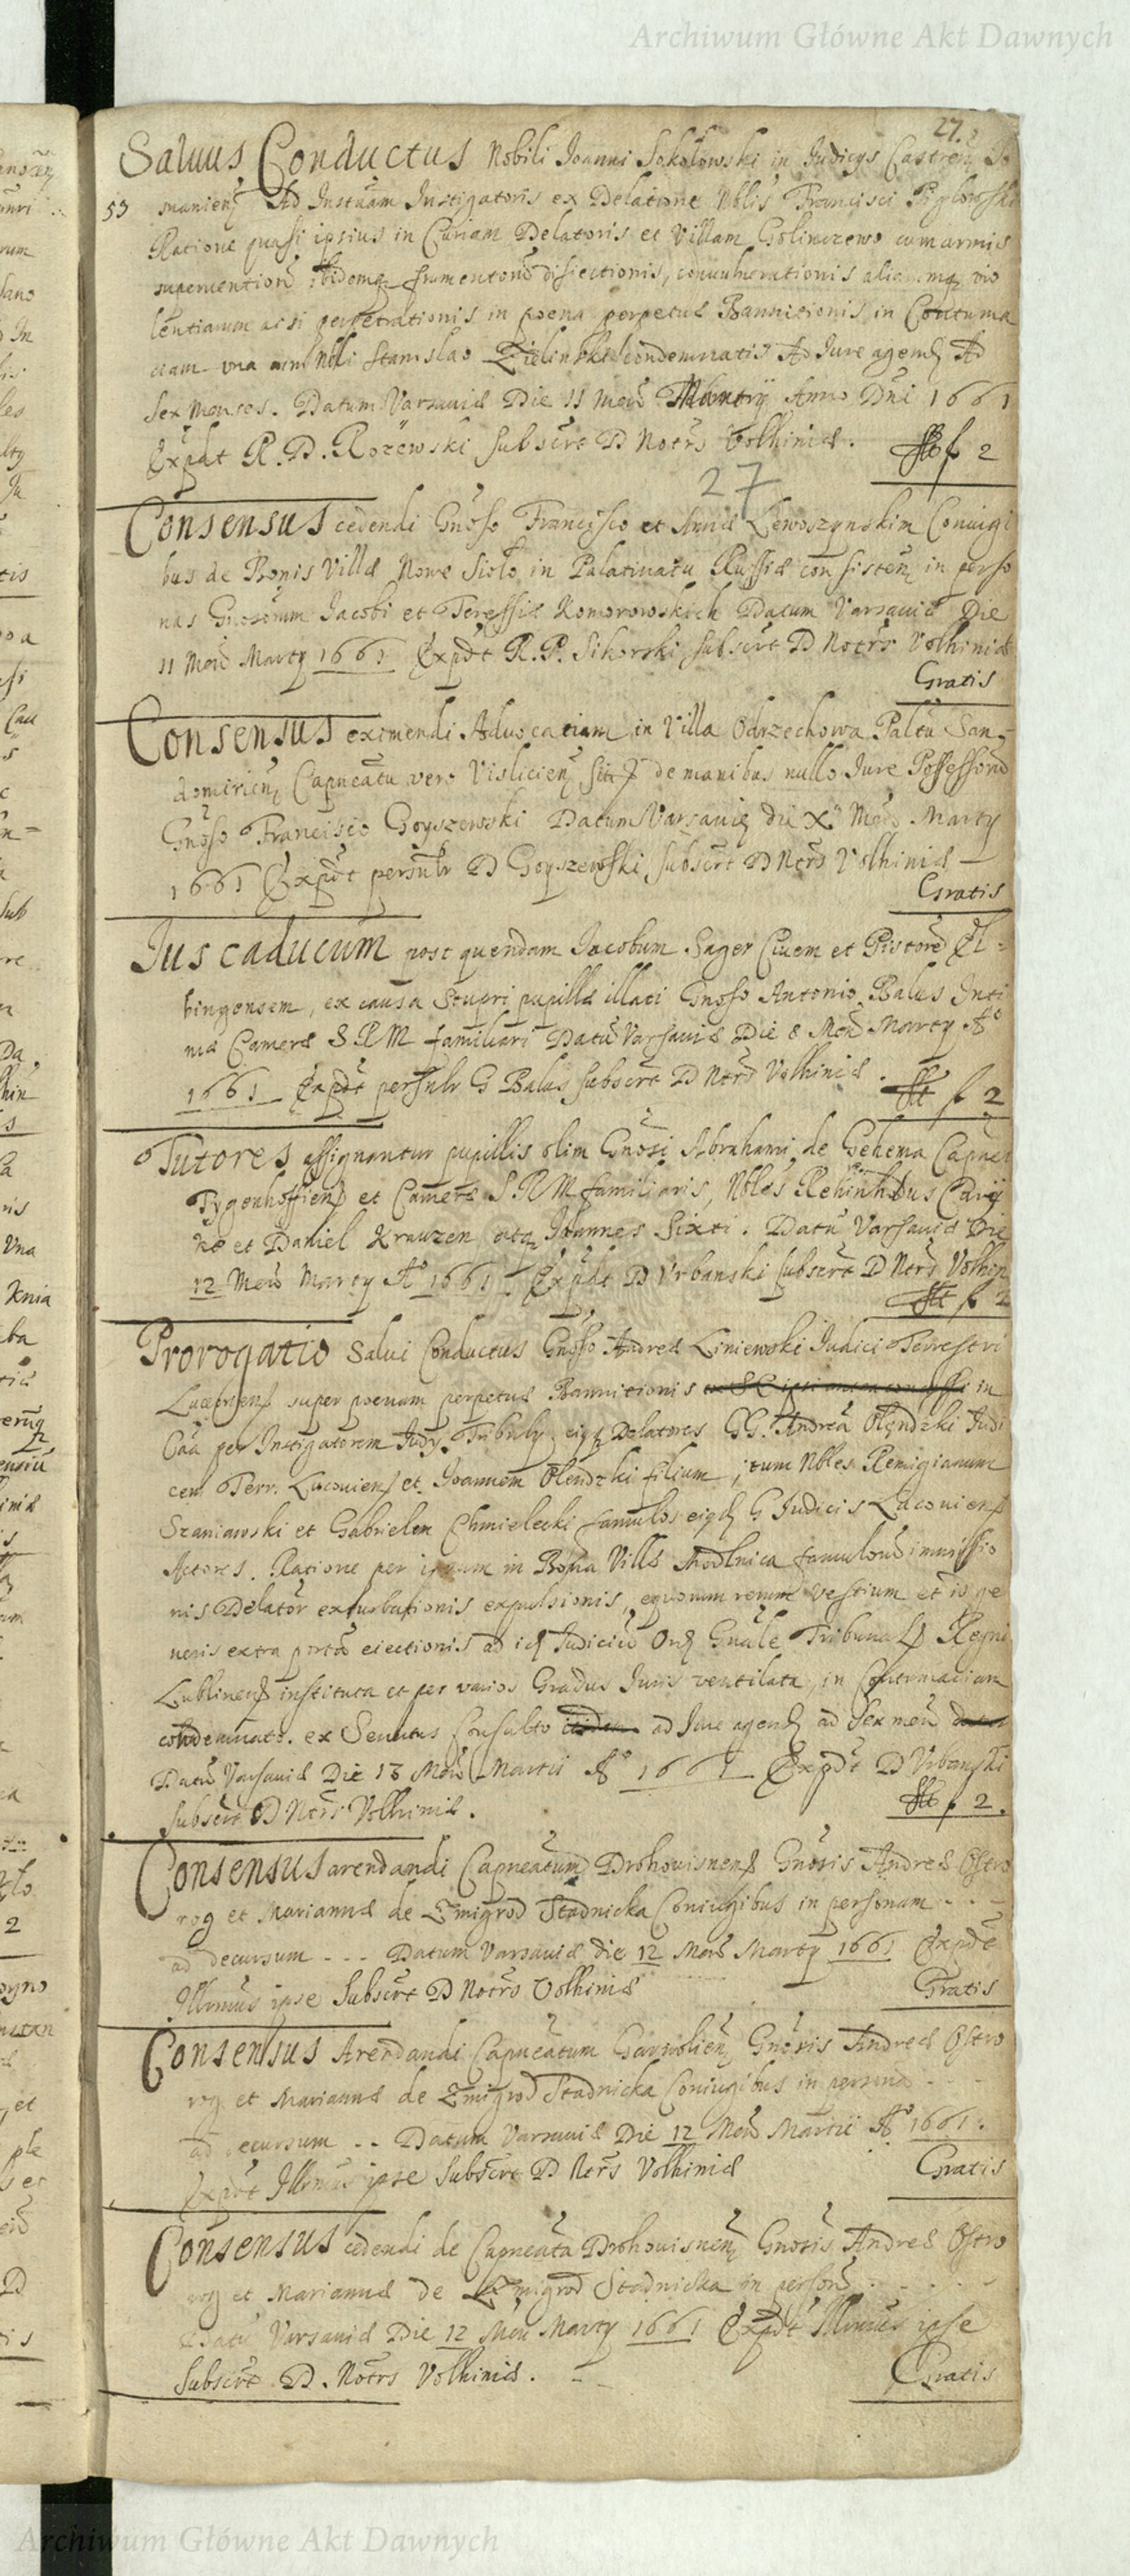 Archiwum Główne Akt Dawnych
27.
Salvus Conductus Nobili Joanni Sokołowski in Judicys Castren
53 snanien Ad Instãam Instigatoris ex Delatione Nblis Francisci
Ratione quasi ipsius in Curiam Delatoris et Villam Golinczewo cum armis
frumentorũ disiectionis, convulnerationis vio
lentiarum ac si perpetrationis in poena perpetuæ Bannitionis in Contuma
ciam una cum Nbli Stanislao Zielinski condemnatis Ad Jure agend Ad
sex Menses. Datum Varsaviæ Die 11 Mens Marty Anno Dni 1661
Expdt R. D. Rożewski subscrt D Notrs Volhiniæ. f 2
27
Consensus cedendi Gnoso Francisco et Annæ Lewoszynskim Coniugi
bus de Bonis Villæ Nowe Sioło in Palatinatu Russiæ consisten in perso
nas Gnosorum Jacobi et Teressiæ Komorowskich Datum Varsaviæ Die
11 Mens Marty 1661 Expdt R. P. Sikorski subscrt D Notrs Volhiniæ
Gratis
Consensus eximendi Advocatiam in Villa Odrzechowa Paltũ San=
domirien Capneatu vero Vislicien de manibus nullo Jure Possessorũ
Gnoso Francisco Goyszewski Datum Varsaviæ die X Mens Marty
1661 Expdt persnlr D Goyszewski subscrt D Ntrs Volhiniæ
Gratis
Jus caducum post quendam Jacobum Sager Civem et Pistorẽ El=
bingensem, ex causa stupri pupillæ illati Gnoso Antonio Balus Inti
mæ Cameræ S R M familiari Datũ Varsaviæ Die 8 Mens Marty Aº
1661 Expdt persnlr G Balus subscrt D Ntrs Volhiniæ f 2
Tutores assignantur pupillis olim Gnosi Abrahami de Gehema Capnei
et Cameræ S R M familiaris, Nbles
ke et Daniel Krauzen atq Johannes Sixti. Datũ Varsaviæ Die
12 Mens Marty Aº 1661 Expdt D Urbanski subscrt D Ntrs Volhin
f 2
Prorogatio Salvi Conductus Gnoso Andreæ Liniewski Judici Terrestri
super poenam perpetuæ Bannitionis in
Cãa per Instigatorem Delatores GG. Andreã Olędzki Judi
cem Terr. Lucoviens et Joannem Olendzki filium, tum Nbles Remigianum
Szaniawski et Gabrielem Chmielecki famulos G Judicis Lucoviens
Actores. Ratione per ipsum in Bona Villæ famulorũ immissio
nis Delator exturbationis expulsionis, equorum rerum vestium et
neris extra portã eiectionis ad id Judiciũ Ord Gnale Tribunal Regni
Lublinens instituta et per varios Gradus Juris ventilata, in Contumaciam
condemnato. ex Senatus Consulto ad Jure agend ad sex men
Datũ Varsaviæ Die 13 Mens Martii Aº 1661 Expdt D Urbanski
subscrt D Ntrs Volhiniæ. f 2.
Consensus arendandi Capneatum Drohovisnens Gnosis Andreæ Ostro
rog et Mariannæ de Zmigrod Stadnicka Coniugibus in personam - - -
ad decursum - - - Datum Varsaviæ die 12 Mens Marty 1661 Expdt
Illrmus ipse Subscrt D Notrs Volhiniæ Gratis
Consensus Arendandi Capneatum Garwolien Gnosis Andreæ Ostro
rog et Mariannæ de Zmigrod Stadnicka Coniugibus in persona - - -
ad decursum - - Datum Varsaviæ Die 12 Mens Martii Aº 1661.
Expdt Illrmus ipse Subscrt D Ntrs Volhiniæ Gratis
Consensus cedendi de Capneata Drohovisnen Gnosis Andreæ Ostro
rog et Mariannæ de Zmigrod Stadnicka in person . . . . .
Datũ Varsaviæ Die 12 Mens Marty 1661 Expdt Illrmus ipse
Subscrt D. Notrs Volhiniæ. Gratis
Archiwum Główne Akt Dawnych